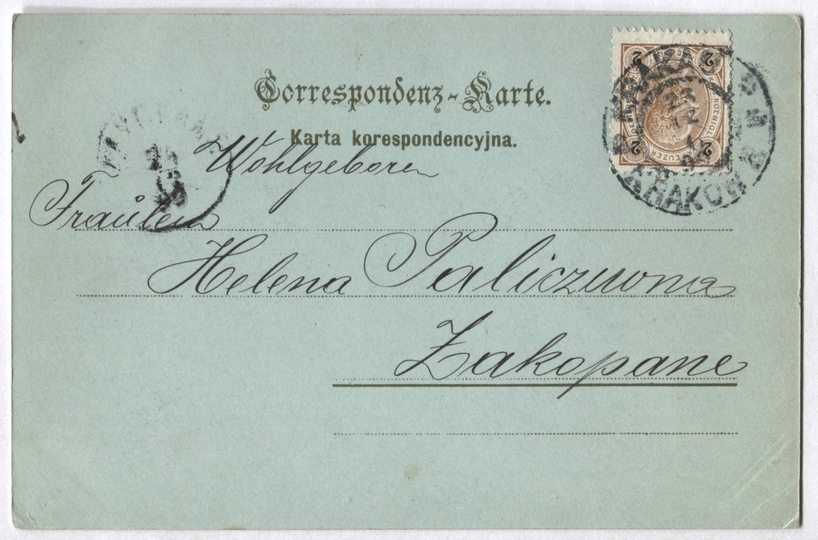 Correspondenz-Karte.
Karta korespondencyjna.
Wohlgeboren
Fräulein
Helena Paliczuwna
Zakopane
2 2
2
KRAKÓW